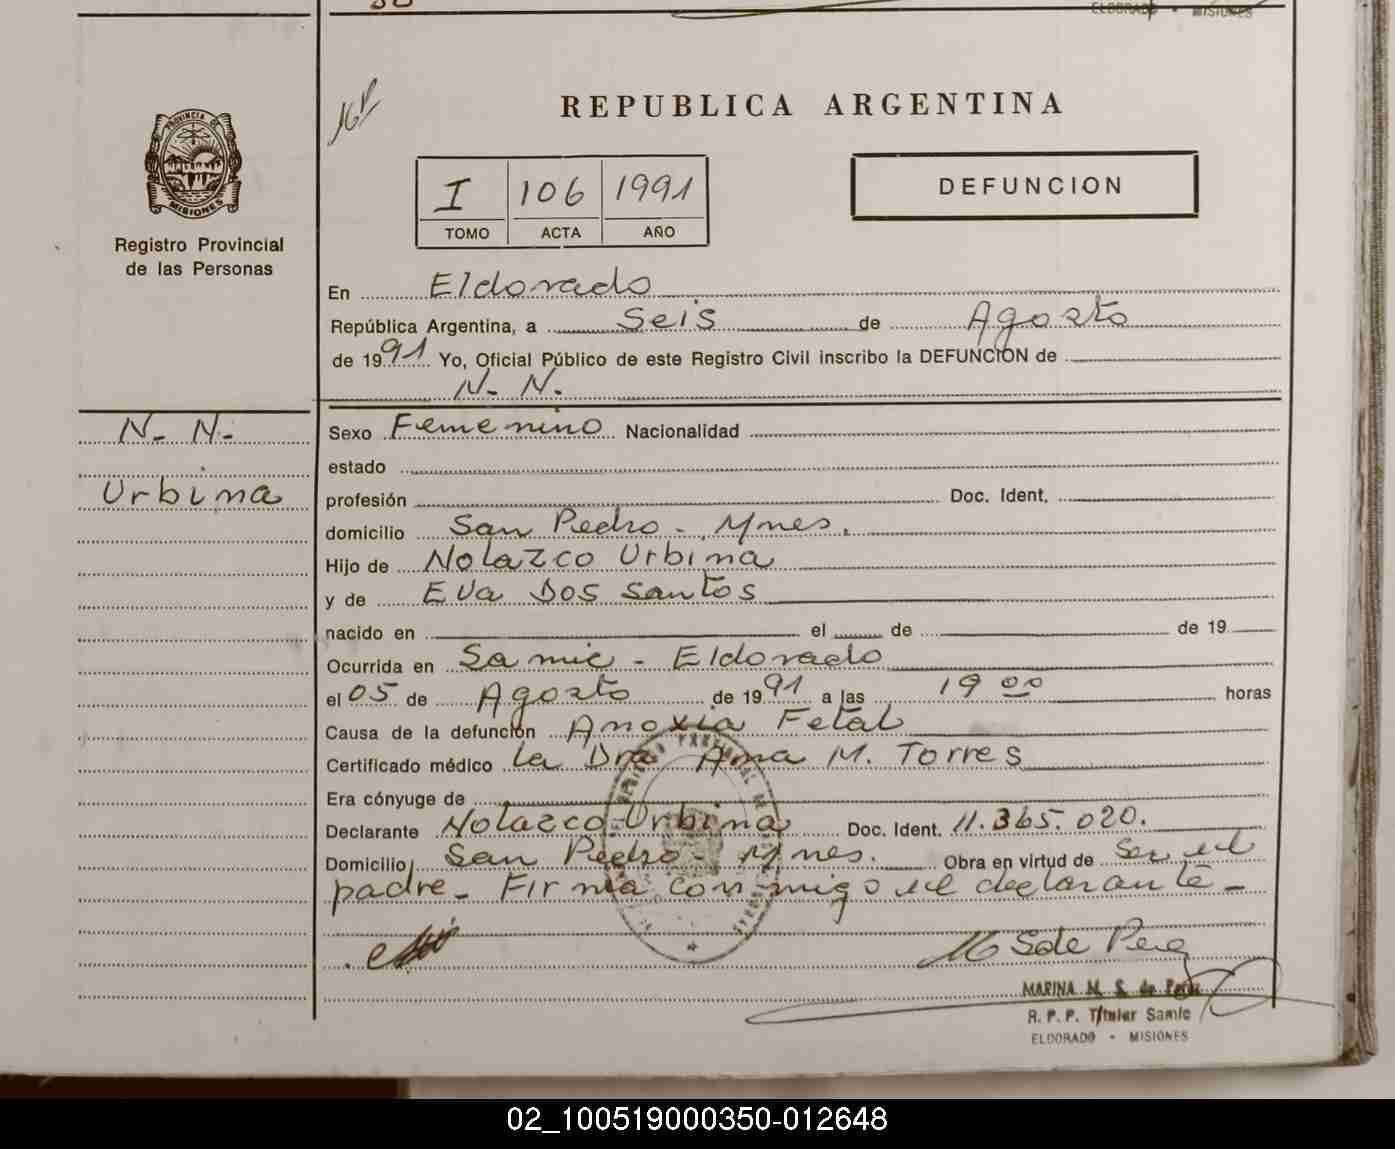 ELDORADO - MISIONES
REPUBLICA ARGENTINA
PROVINCIA DE
MISIONES
Registro Provincial
de las Personas
I 106 1991
TOMO ACTA AÑO
DEFUNCION
En Eldorado
República Argentina, a Seis de Agosto
de 1991 Yo, Oficial Público de este Registro Civil inscribo la DEFUNCION de
N. N.
N. N.
Urbina
Sexo Femenino Nacionalidad
estado
profesión Doc. Ident.
domicilio San Pedro - Mnes.
Hijo de Nolazco Urbina
y de Eva Dos Santos
nacido en el de de 19
Ocurrida en Samic - Eldorado
el 05 de Agosto de 1991 a las 19 00 horas
Causa de la defunción Anoxia Fetal
Certificado médico La Dra Ana M. Torres
Era cónyuge de
Declarante Nolazco Urbina Doc. Ident. 11.365.020.
Domicilio San Pedro - Mnes. Obra en virtud de ser el
padre - Firma conmigo el declarante -
MARINA M. S. de
R. P. P. Titular Samic
ELDORADO - MISIONES
02_100519000350-012648